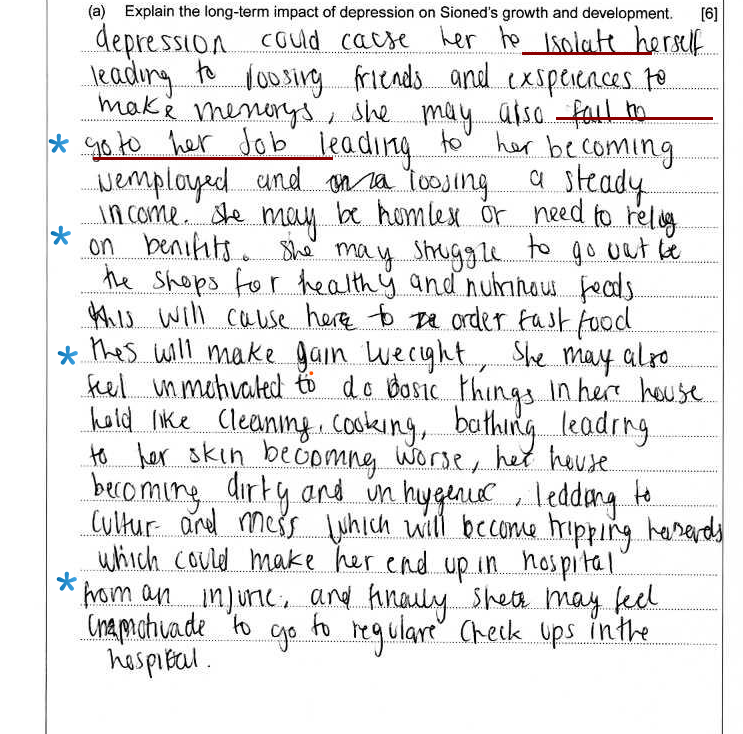 (a) Explain the long-term impact of depression on Sioned's growth and development. [6]
depression could cacse her to isolate herself
leading to loosing friends and exspeiences to
make memorys, she may also fail to
go to her Job leading to her becoming
unemployed and loosing a steady
income. She may be homless or need to relig
on benifits. She may struggle to go out
the shops for healthy and nutrihous foods
this will cause here to order fast food
thes will make gain wecight, She may also
feel unmotivated to do basic things in here house
hold like cleaning, cooking, bathing leadrng
to her skin becoomng worse, her house
becoming dirty and unhygenic, ledding to
Cultur and mess which will become tripping hazerds
which could make her end up in hospital
from an injurie, and finally may feel
to go to regulare check ups in the
hospital.